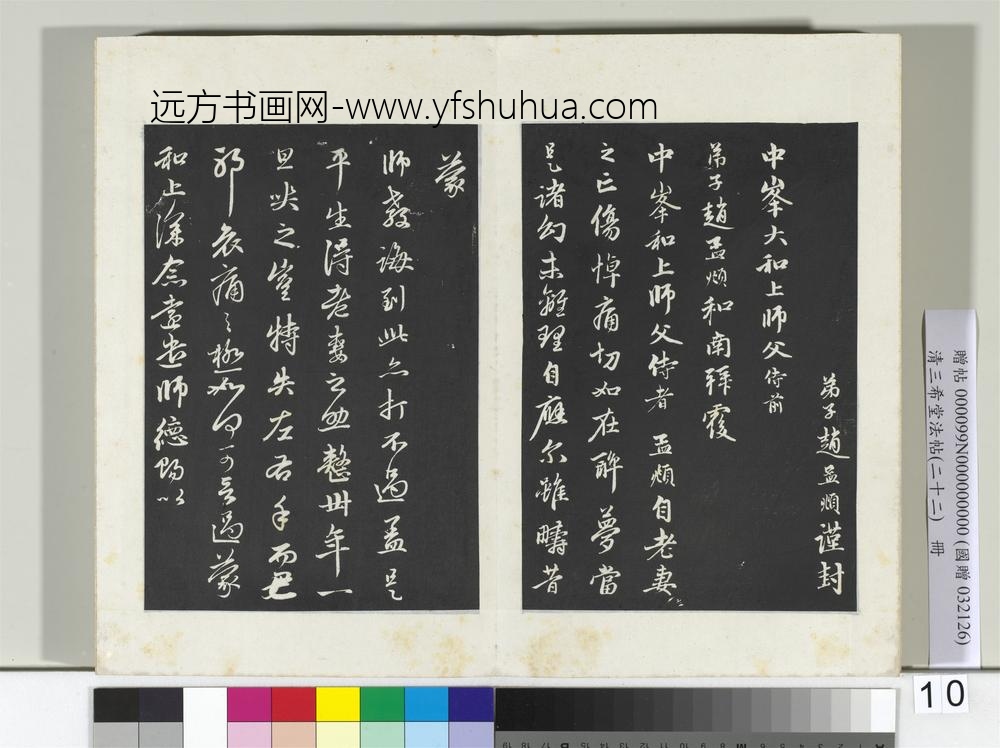 远方书画网-www.yfshuhua.com
弟子趙孟頫謹封
中峯大和上師父侍前
弟子趙孟頫和南拜覆
中峯和上師父侍者 孟頫自老妻
之亡傷悼痛切如在醉夢當
是諸幻未離理自應尔雖疇昔
蒙
師教誨到此亦打不過盖是
平生得老妻之助整卅年一
旦哭之豈特失左右手而已
耶哀痛之極如何可言過蒙
和上深念遠遣師德賜以
贈帖 000099N000000000 (國贈 032126)
清三希堂法帖(二十二) 冊
10